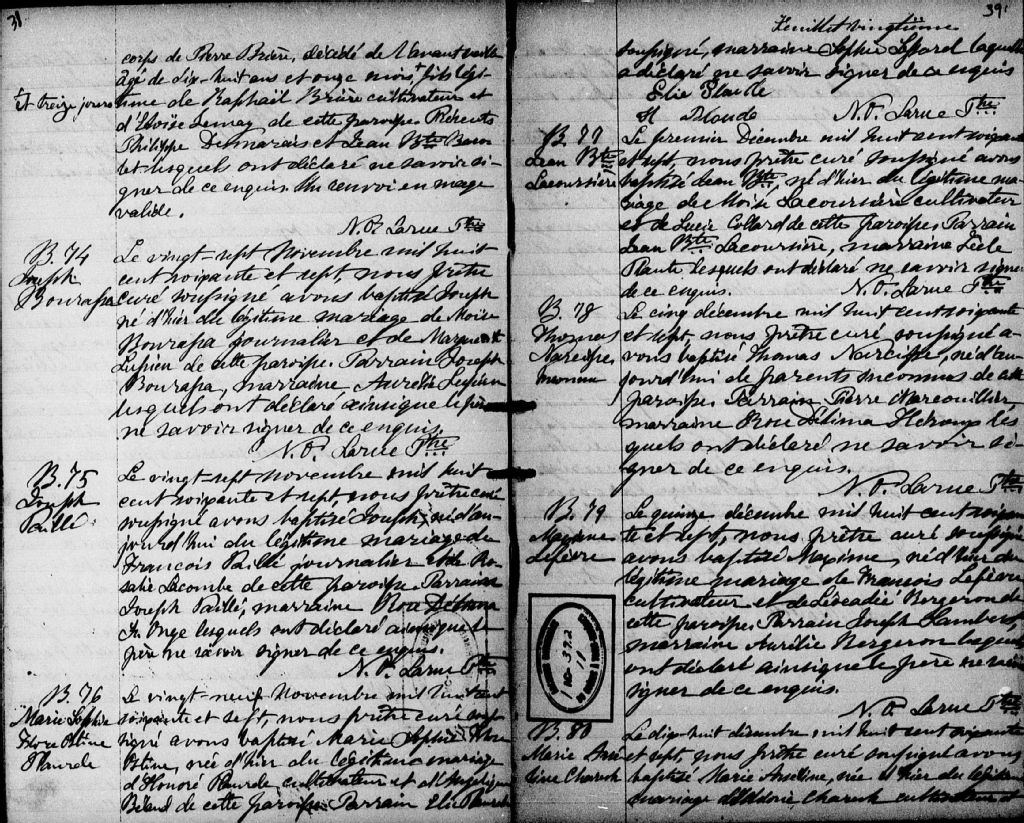 31
corps de Pierre Brière, décédé de l'avant veille
âgé de dix-huit ans et onze mois + fils légi-
+ et treize jours
time de Raphaël Brière cultivateur et
d'Eloïse Lemay de cette paroisse. Présents
Philippe Desmarais et Jean Bte
lesquels ont déclaré ne savoir si-
gner de ce enquis. Un renvoi en marge
valide.
N.O. Larue Ptre
B. 74
Joseph
Bourassa
Le vingt-sept Novembre mil huit
cent soixante et sept, nous prêtre
curé soussigné avons baptisé Joseph
né d'hier du légitime mariage de Moïse
Bourassa journalier et de Marguerite
Lupien de cette paroisse. Parrain Joseph
Bourassa, marraine Aurélie Lupien
lesquels ont déclaré ainsi que le père
ne savoir signer de ce enquis.
N.O. Larue Ptre
B. 75
Joseph
Paillé
Le vingt-sept novembre mil huit
cent soixante et sept nous prêtre curé
soussigné avons baptisé Joseph, né d'au-
jourd'hui du légitime mariage de
François Paillé journalier et de Ro-
salie Lacombe de cette paroisse. Parrain
Joseph Paillé, marraine Rose Délima
St. Onge lesquels ont déclaré ainsi que le
père ne savoir signer de ce enquis.
N.O. Larue Ptre
B. 76
Marie Sophie
Flore
Plourde
Le vingt-neuf Novembre mil huit cent
soixante et sept, nous prêtre curé sous-
signé avons baptisé Marie Sophie Flore
née d'hier du légitime mariage
d'Honoré Plourde cultivateur et d'Angélique
Béland de cette paroisse. Parrain Elie Plourde
39
Feuillet vingtième
soussigné, marraine Sophie laquelle
a déclaré ne savoir signer de ce enquis
Elie
H
N.O. Larue Ptre
B. 77
Jean Bte
Lacoursière
Le premier Décembre mil huit cent soixante
et sept, nous prêtre curé soussigné avons
baptisé Jean Bte, né d'hier du légitime ma-
riage de Moïse Lacoursière cultivateur
et de Lucie Collard de cette paroisse. Parrain
Jean Bte Lacoursière, marraine
Plante, lesquels ont déclaré ne savoir signer
de ce enquis.
N.O. Larue Ptre
B. 78
Thomas
Narcisse
inconnu
Le cinq décembre mil huit cent soixante
et sept, nous prêtre curé soussigné a-
vons baptisé Thomas Narcisse, né d'au-
jourd'hui de parents inconnus de cette
paroisse. Parrain Pierre Marcouiller
marraine Rose Délima Héroux les
quels ont déclaré ne savoir si-
gner de ce enquis.
N.O. Larue Ptre
B. 79
Maxime
Lefèvre
Le quinze décembre mil huit cent soixan-
te et sept, nous prêtre curé soussigné
avons baptisé Maxime, né d'hier du
légitime mariage de François Lefèvre
cultivateur et de Léocadie Bergeron de
cette paroisse. Parrain Joseph Lambert,
marraine Aurélie Bergeron lesquels
ont déclaré ainsi que le père ne savoir
signer de ce enquis.
N.O. Larue Ptre
B. 80
Le dix-huit décembre mil huit cent soixante
et sept, nous prêtre curé soussigné avons
baptisé Marie née d'hier du légitime
mariage cultivateur et